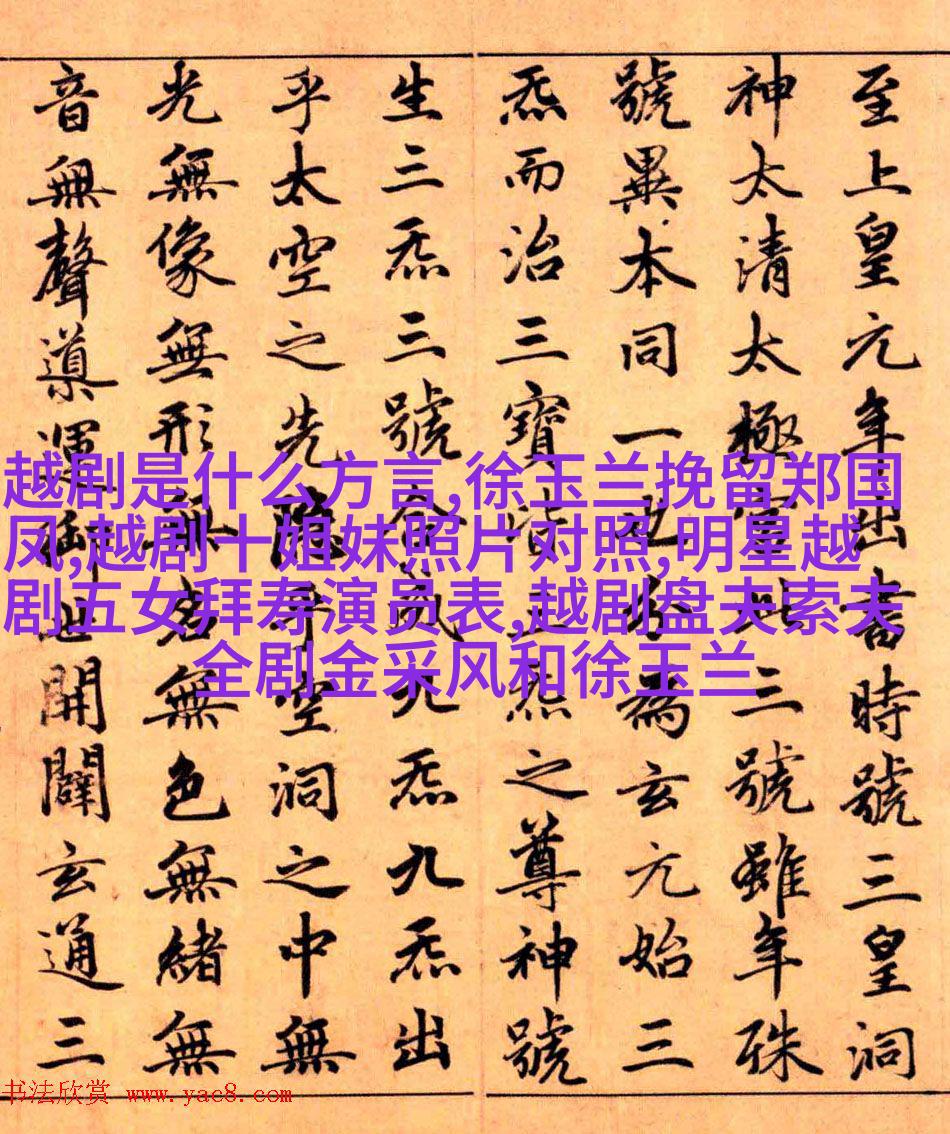 至上皇元年出書時號三皇洞
神太清太極宮此三號雖年殊
號異本同一也分為玄元始三
炁而治三寶皆三炁之尊神號
生三炁三號合生九炁九炁出
乎太空之先隱乎空洞之中無
光無像無形無名無色無緒無
音無聲導運御世開闢玄通三
越剧是什么方言,徐玉兰挽留郑国
凤,越剧十姐妹照片对照,明星越
剧五女拜寿演员表,越剧盘夫索夫
全剧金采风和徐玉兰
书法欣赏 www.yac8.com